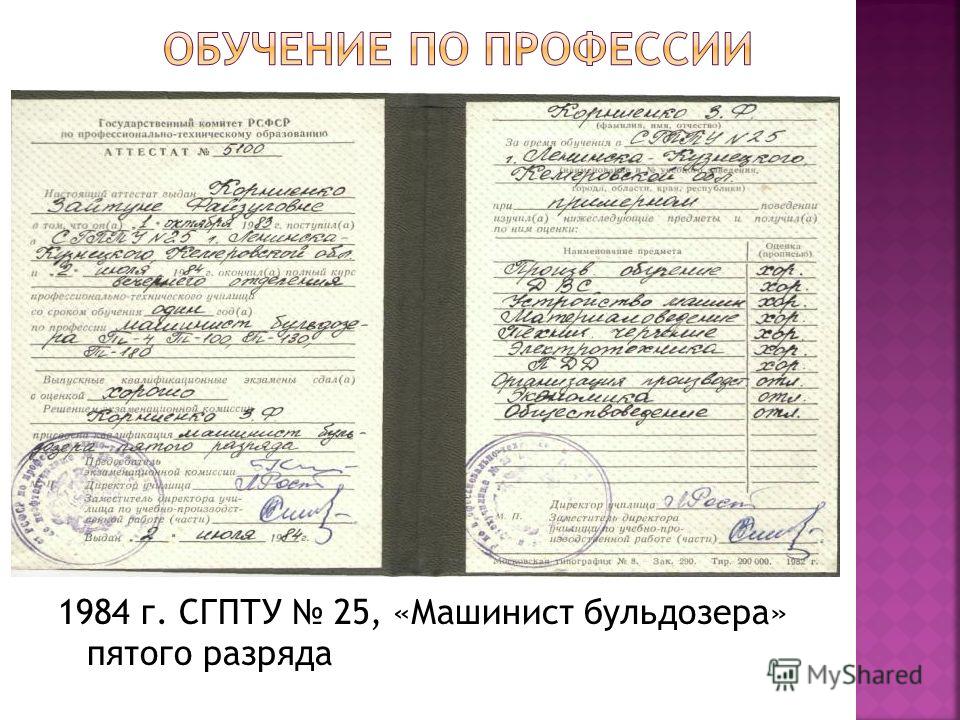 ОБУЧЕНИЕ ПО ПРОФЕССИИ
Государственный комитет РСФСР
по профессионально-техническому образованию
АТТЕСТАТ № 5100
Настоящий аттестат выдан Корниенко
Зайтуне Файзуловне
в том, что он(а) „1" октября 1983 г. поступил(а)
в СГПТУ N25 г. Ленинска-
Кузнецкого Кемеровской обл.
и „2" июля 1984 г. окончил(а) полный курс
вечернего отделения
профессионально-технического училища
со сроком обучения один год(а)
по профессии машинист бульдозе-
ра Т-4 Т-100, Т-130,
Т-180
Выпускные квалификационные экзамены сдал(а)
с оценкой хорошо
Решением экзаменационной комиссии
Корниенко З Ф
присвоена квалификация машинист буль-
дозера пятого разряда
Председатель
экзаменационной комиссии
М. П. Директор училища
Заместитель директора учи-
лища по учебно-производст-
венной работе (части)
Выдан „2" июля 1984 г.
Корниенко З. Ф.
(фамилия, имя, отчество)
За время обучения в СГПТУ N25
г. Ленинска-Кузнецкого
(наименование и № учебного заведения,
Кемеровской обл.
города, области, края, республики)
при примерном поведении
изучил(а) нижеследующие предметы и получил(а)
по ним оценки:
Наименование предмета Оценка (прописью)
Произв обучение хор.
ДВС хор.
Устройство машин хор.
Материаловедение хор.
Технич. черчение хор.
Электротехника хор.
ПДД хор.
Организация производст отл.
Экономика отл.
Обществоведение отл.
Директор училища
М. П. Заместитель директора
училища по учебно-про-
изводственной работе (части)
Московская типография № 8. Зак. 290. Тир. 200 000. 1982 г.
1984 г. СГПТУ № 25, «Машинист бульдозера»
пятого разряда
MyShared